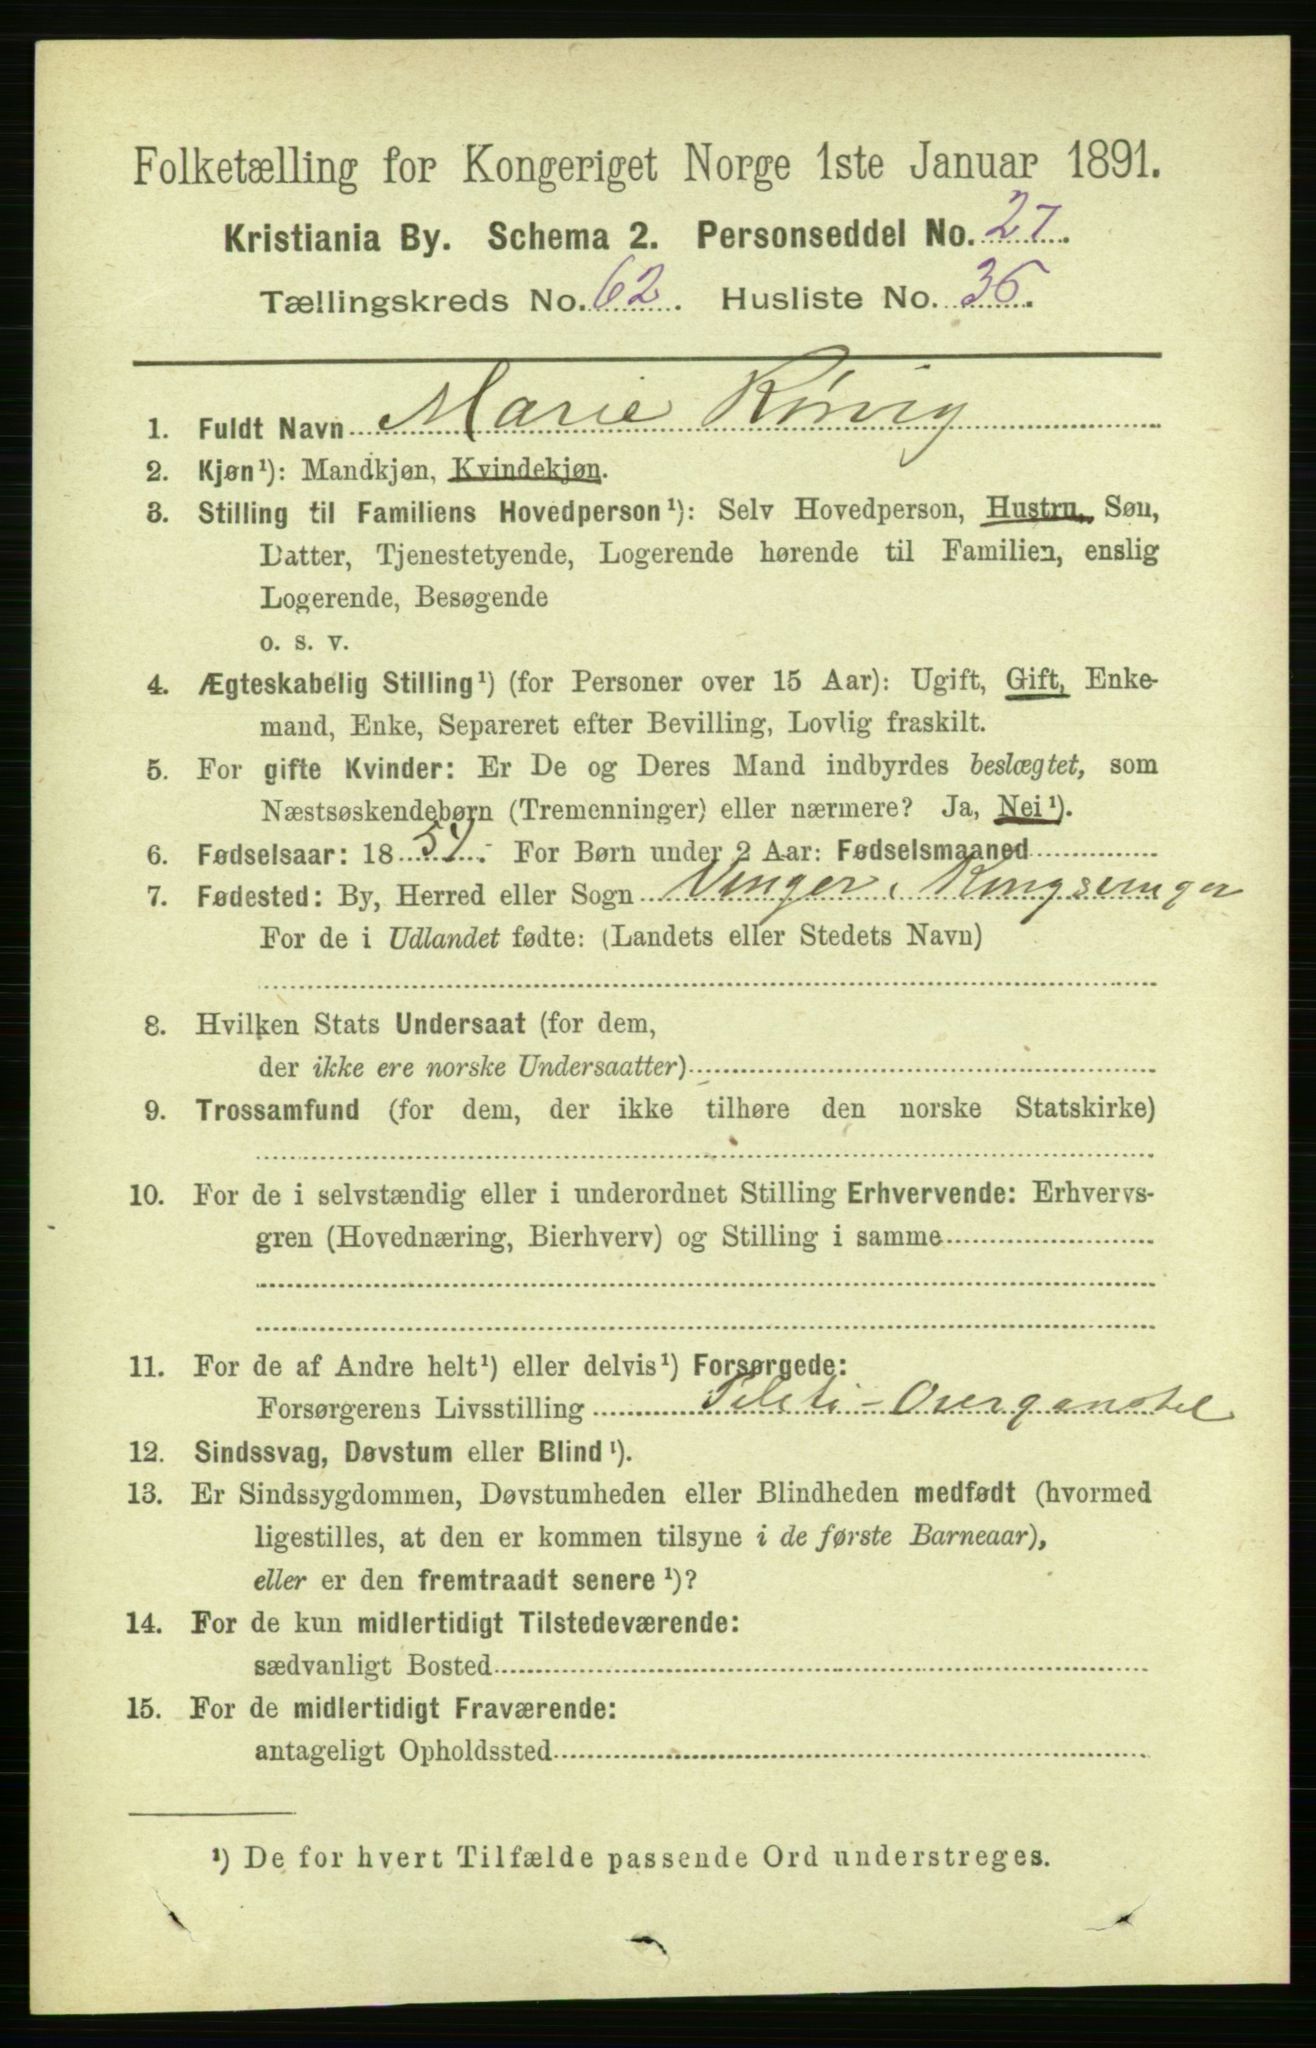 Folketælling for Kongeriget Norge 1ste Januar 1891.
Kristiania By. Schema 2. Personseddel No. 27.
Tællingskreds No. 62. Husliste No. 36.
1. Fuldt Navn Marie Rørvig
2. Kjøn¹): Mandkjøn, Kvindekjøn.
3. Stilling til Familiens Hovedperson¹): Selv Hovedperson, Hustru, Søn,
Datter, Tjenestetyende, Logerende hørende til Familien, enslig
Logerende, Besøgende
o. s. v.
4. Ægteskabelig Stilling¹) (for Personer over 15 Aar): Ugift, Gift, Enke-
mand, Enke, Separeret efter Bevilling, Lovlig fraskilt.
5. For gifte Kvinder: Er De og Deres Mand indbyrdes beslægtet, som
Næstsøskendebørn (Tremenninger) eller nærmere? Ja, Nei¹).
6. Fødselsaar: 1857. For Børn under 2 Aar: Fødselsmaaned
7. Fødested: By, Herred eller Sogn Vinger, Kongsvinger
For de i Udlandet fødte: (Landets eller Stedets Navn)
8. Hvilken Stats Undersaat (for dem,
der ikke ere norske Undersaatter)
9. Trossamfund (for dem, der ikke tilhøre den norske Statskirke)
10. For de i selvstændig eller i underordnet Stilling Erhvervende: Erhvervs-
gren (Hovednæring, Bierhverv) og Stilling i samme
11. For de af Andre helt¹) eller delvis¹) Forsørgede:
Forsørgerens Livsstilling Politi-Overkonstbl
12. Sindssvag, Døvstum eller Blind¹).
13. Er Sindssygdommen, Døvstumheden eller Blindheden medfødt (hvormed
ligestilles, at den er kommen tilsyne i de første Barneaar),
eller er den fremtraadt senere¹)?
14. For de kun midlertidigt Tilstedeværende:
sædvanligt Bosted
15. For de midlertidigt Fraværende:
antageligt Opholdssted
¹) De for hvert Tilfælde passende Ord understreges.